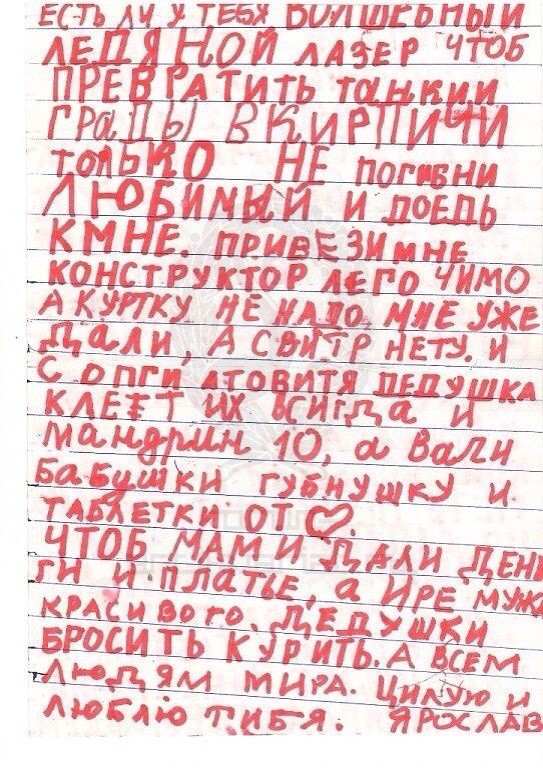 ЕСТЬ ЛИ У ТЕБЯ ВОЛШЕБНЫЙ
ЛЕДЯНОЙ ЛАЗЕР ЧТОБ
ПРЕВРАТИТЬ танкии
ГРаДЫ В КИРПИЧИ
тоЛЬКО НЕ погибни
ЛЮБИМЫЙ И ДОЕДЬ
КМНЕ. ПРИВЕЗИ мНЕ
КОНСТРУКТОР ЛЕГО ЧИМО
А КУРТКУ НЕ НАДО. МНЕ УЖЕ
Дали, А СВИТР НЕТУ. И
САПГИ ДЕДУШКА
КЛЕЕТ ИХ ВСИГДа И
мандрин 10, а Вали
Бабушки ГУБНУШКУ И
ТАБЛЕТКИ ОТ ♡.
ЧТОБ МАМИ ДАЛИ ДЕНЬ
ГИ И ПЛАТЬЕ, а ИРЕ МУЖА
КРАСИВОГО. ДЕДУШКИ
БРОСИТЬ КУРИТЬ. А ВСЕМ
ЛЮДЯМ МИРА. ЦИЛУЮ И
ЛЮБЛЮ ТИБЯ. ЯРОСЛАВ